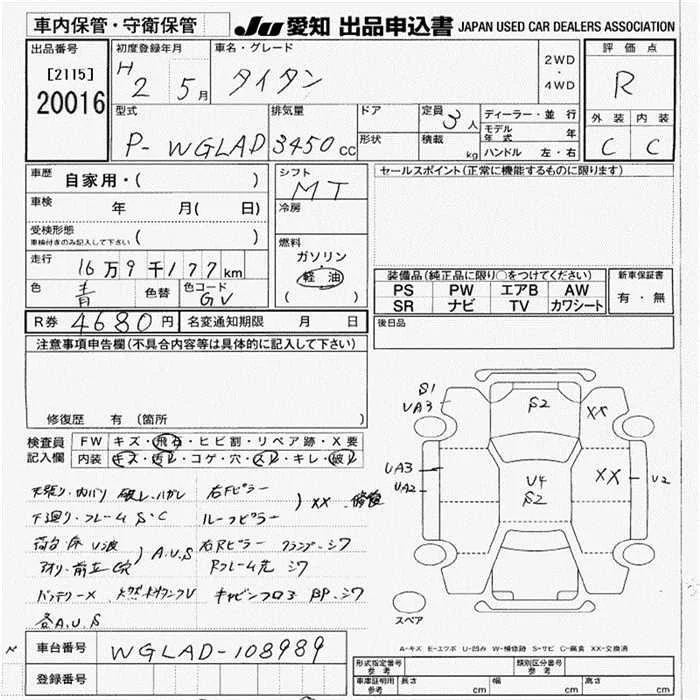 車内保管・守衛保管
JU 愛知 出品申込書 JAPAN USED CAR DEALERS ASSOCIATION
出品番号
[2115]
20016
初度登録年月
H 2 5月
車名・グレード
タイタン
2WD
・
4WD
評価点
R
外装 内装
C C
型式
P- WGLAD
排気量
3450cc
ドア
形状
定員 3人
積載 kg
ディーラー・並行
モデル年式 年
ハンドル 左・右
車歴 自家用・( )
車検 年 月( 日)
受検形態 ( )
車検付きのみ記入して下さい
走行 16万9千177km
色 青 色替 色コード GV
シフト
MT
冷房
燃料
ガソリン
軽油
( )
セールスポイント(正常に機能するものに限ります)
装備品(純正品に限り○をつけてください)
PS PW エアB AW
SR ナビ TV カワシート
新車保証書
有・無
R券 4680円 名変通知期限 月 日
後日品
注意事項申告欄(不具合内容等は具体的に記入して下さい)
修復歴 有 (箇所 )
検査員記入欄
FW キズ・飛石・ヒビ割・リペア跡・X要
内装 キズ・汚レ・コゲ・穴・スレ・キレ・破レ
天張り・内バリ 破レ・ハガレ
右Fピラー
ルーフピラー
) XX 修復
下廻り・フレーム S・C
荷台床 U波
) A.U.S
右Rピラー
シワ
Rフレーム先 シワ
バッテリー×
キャビンフロア BP.シワ
各A.U.S
S1
UA3
S2
XX
UA3
UA2
U4
S2
XX
U2
スペア
A-キズ E-エクボ U-凹み W-補修跡 S-サビ C-腐食 XX-交換済
車台番号 WGLAD-108989
登録番号
形式指定番号 参考
類別区分番号 参考
車庫証明用 参考 長さ cm 幅 cm 高さ cm